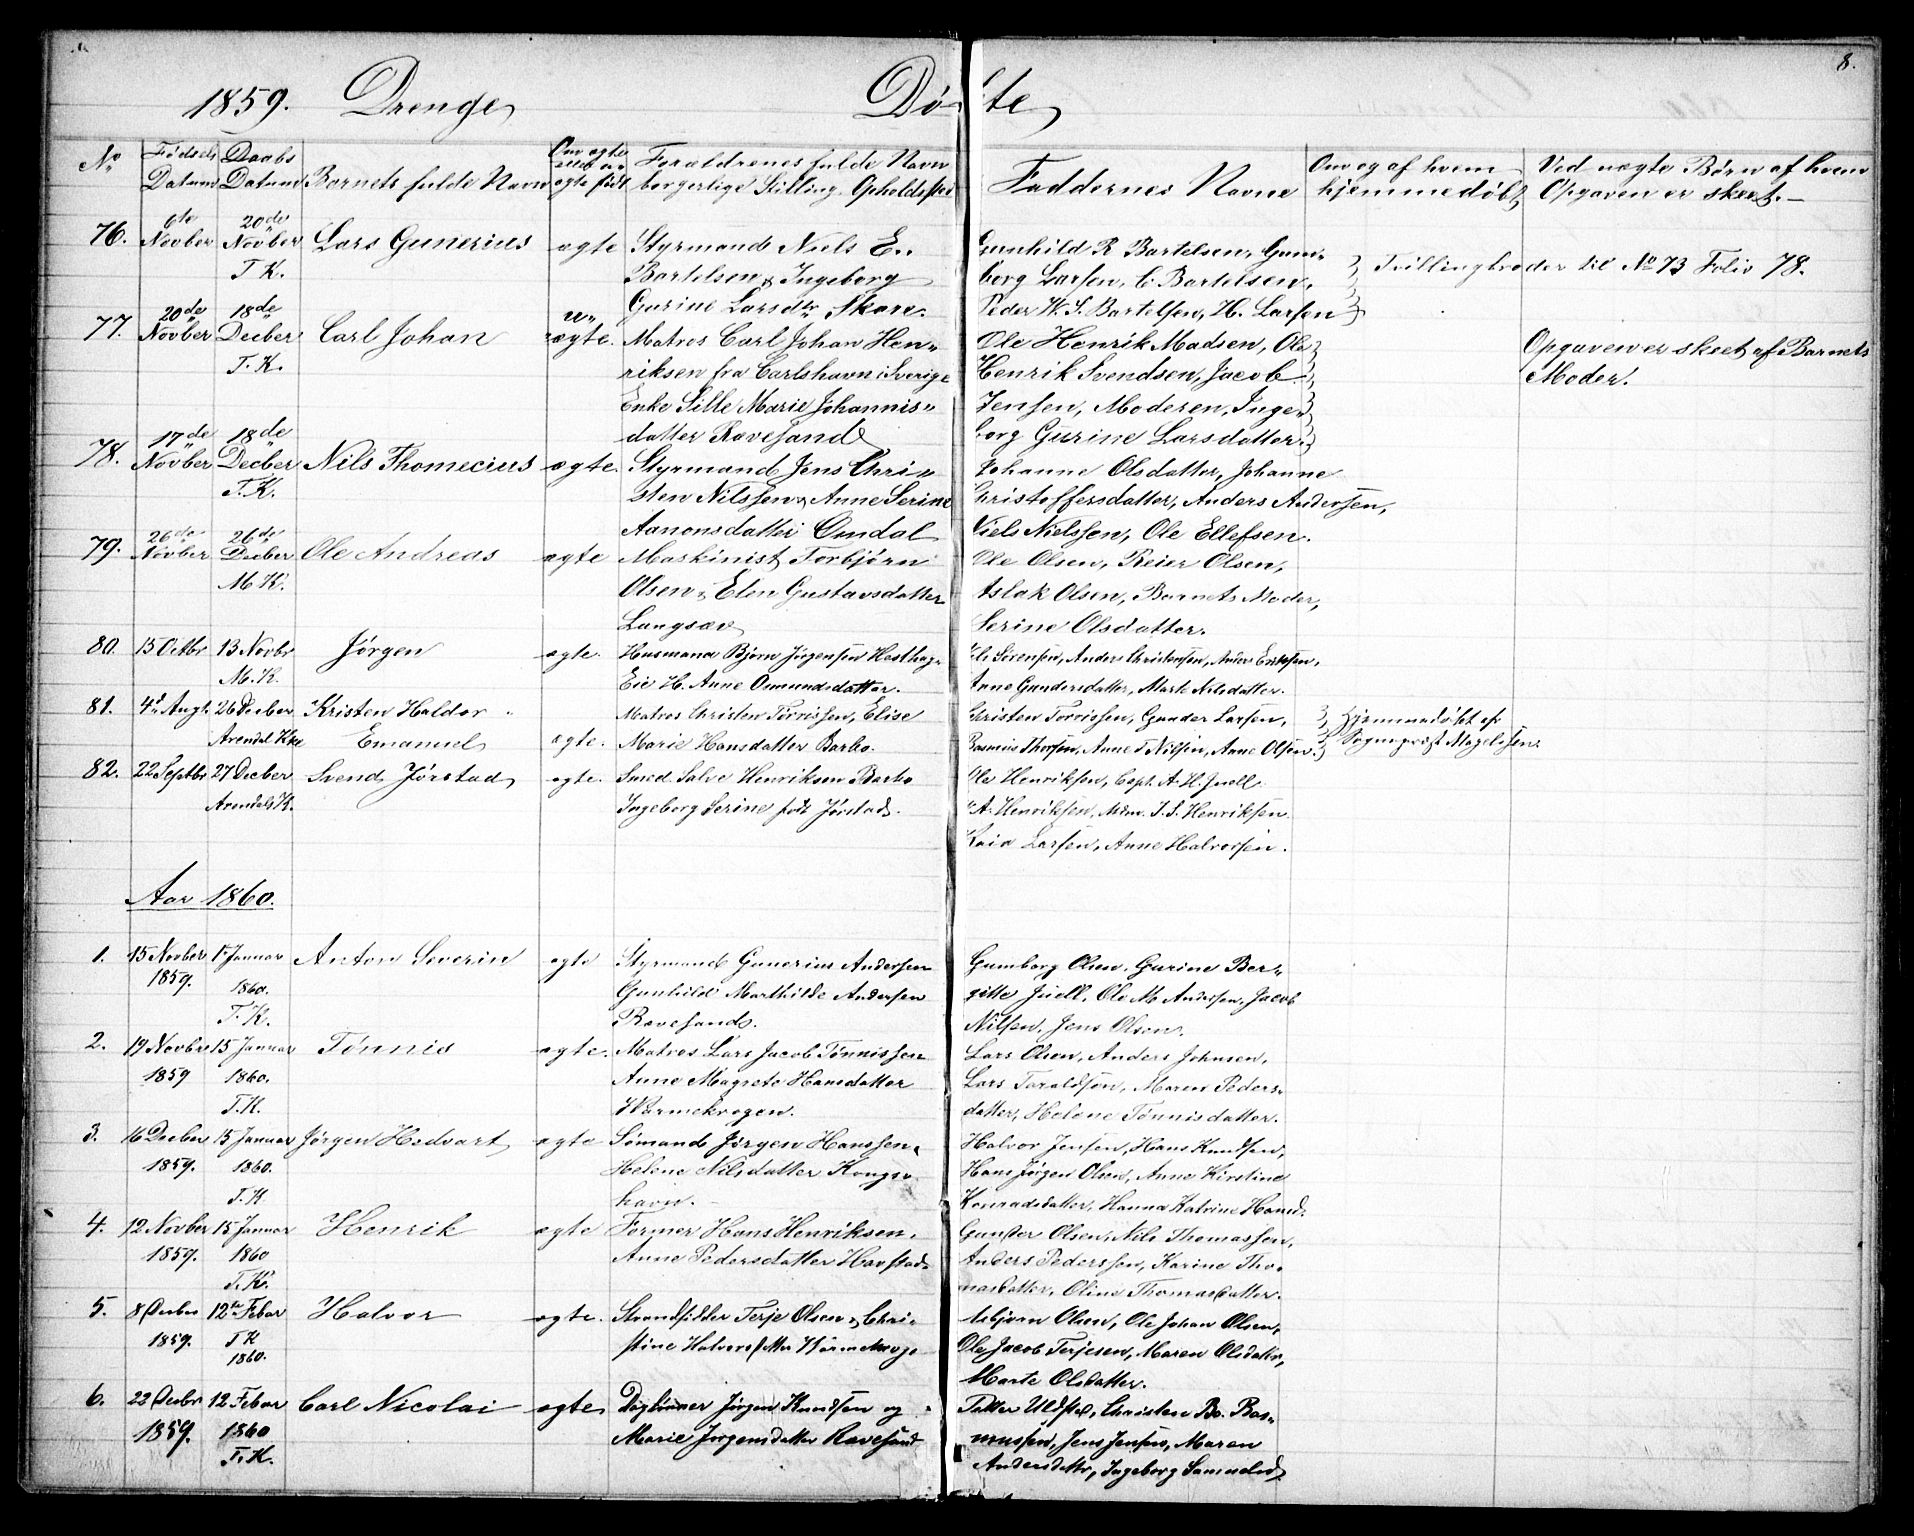 8.
1859. Drenge Døbte
No
Fødsels Datum
Daabs Datum
Barnets fulde Navn
Om ægte eller uægte født
Forældrenes fulde Navn borgerlige Stilling, Opholdsted
Faddernes Navne
Om og af hvem hjemmedøbt
Ved uægte Børn af hvem Opgaven er skeet.—
76. 6te Novber 20de Novber T. K. Lars Gunerius ægte Styrmand Niels E.
Bartelsen & Ingeborg
Gurine Larsdtr Skare.
Gunhild R Bartelsen, Gun-
borg Larsen, C. Bartelsen,
Peder W. S. Bartelsen, H. Larsen
Tvillingbroder til No 73 Folio 78.
77. 20de Novber 18de Decber T. K. Carl Johan u-ægte. Matros Carl Johan Hen-
riksen fra Carlshavn i Sverige
Enke Sille Marie Johannis-
datter Ravesand
Ole Henrik Madsen, Ole
Henrik Svendsen, Jacob
Jensen, Moderen, Inge-
borg Gurine Larsdatter.
Opgaven er skeet af Barnets
Moder.
78. 17de Novber 18de Decber T. K. Nils Thomecius ægte. Styrmand Jens Chri-
sten Nilssen & Anne Serine
Aanonsdatter Omdal
Johanne Olsdatter, Johanne
Christoffersdatter, Anders Andersen,
Niels Nielssen, Ole Ellefsen.
79. 26de Novber 26de Decber M. K. Ole Andreas ægte Maskinist Torbjørn
Olsen & Elen Gustavsdatter
Langsæv
Ole Olsen, Reier Olsen,
Aslak Olsen, Barnets Moder,
Serine Olsdatter.
80. 15 Octbr 13 Novbr M. K. Jørgen ægte. Husmand Bjørn Jørgensen Hesthag-
Eie H. Anne Omundsdatter.
Ole Sørensen, Anders Christensen, Anders Eriksen,
Anne Gundersdatter, Marte Nilsdatter.
81. 4de Augt. 26 Decber Arendal Kke Kristen Haldor
Emanuel ægte. Matros Christen Tørrissen, Elise
Marie Hansdatter Barbo.
Christen Torrissen, Gunder Larsen,
Rasmus Thorsen, Anne T Nilsen, Anne Olsen.
Hjemmedøbt af
Sogneprest Magelssen.
82. 22 Septbr 27 Decber Arendals K. Svend Jørstad ægte. Smed Salve Henriksen Barbo
Ingeborg Serine født Jørstad.
Ole Henriksen, Capt. A. H. Juell
A. Henriksen, Mdm. I. S. Henriksen.
Karen Larsen, Anne Halvorsen.
Aar 1860.
1. 15 Novber 1859. 1 Januar 1860. T. K. Anton Severin ægte Styrmand Gunerius Andersen
Gunhild Marthilde Andersen
Ravesand.
Gumborg Olsen, Gurine Ber-
gitte Juell, Ole M Andersen, Jacob
Nilsen, Jens Olsen.
2. 19 Novbr 1859 15 Januar 1860. T. K. Tønnis ægte. Matros Lars Jacob Tønnissen
Anne Magrete Hansdatter
Warmekrogen.
Lars Olsen, Anders Johnsen,
Lars Taraldsen, Maren Peders-
datter, Helene Tønnisdatter.
3. 16 Decber 1859. 15 Januar 1860. T. K. Jørgen Hedvart ægte Sømand Jørgen Hanssen,
Helene Nilsdatter Kongs-
havn.
Halvor Jensen, Hans Knudsen,
Hans Jørgen Olsen, Anne Kirstine
Konradsdatter, Hanna Katrine Hansd.
4. 12 Novber 1859. 15 Januar 1860 T. K. Henrik ægte Former Hans Henriksen,
Anne Pedersdatter Havstad.
Gunder Olsen, Nils Thomassen,
Anders Pederssen, Karine Tho-
masdatter, Oline Thomasdatter.
5. 8 Decber 1859. 12te Febar T K 1860. Halvor ægte. Strandsidder Terje Olsen & Chri-
stine Halvorsdatter
Asbjørn Olsen, Ole Johan Olsen,
Ole Jacob Terjesen, Maren Olsdatter,
Marte Olsdatter.
6. 22 Decbr 1859. 12 Febar 1860 T. K. Carl Nicolai ægte Daglønner Jørgen Knudsen og
Marie Jørgensdatter Ravesand
Petter Uldsted, Christen Bo. Ras-
mussen, Jens Jensen, Maren
Andersdatter, Ingeborg Samuelsd.